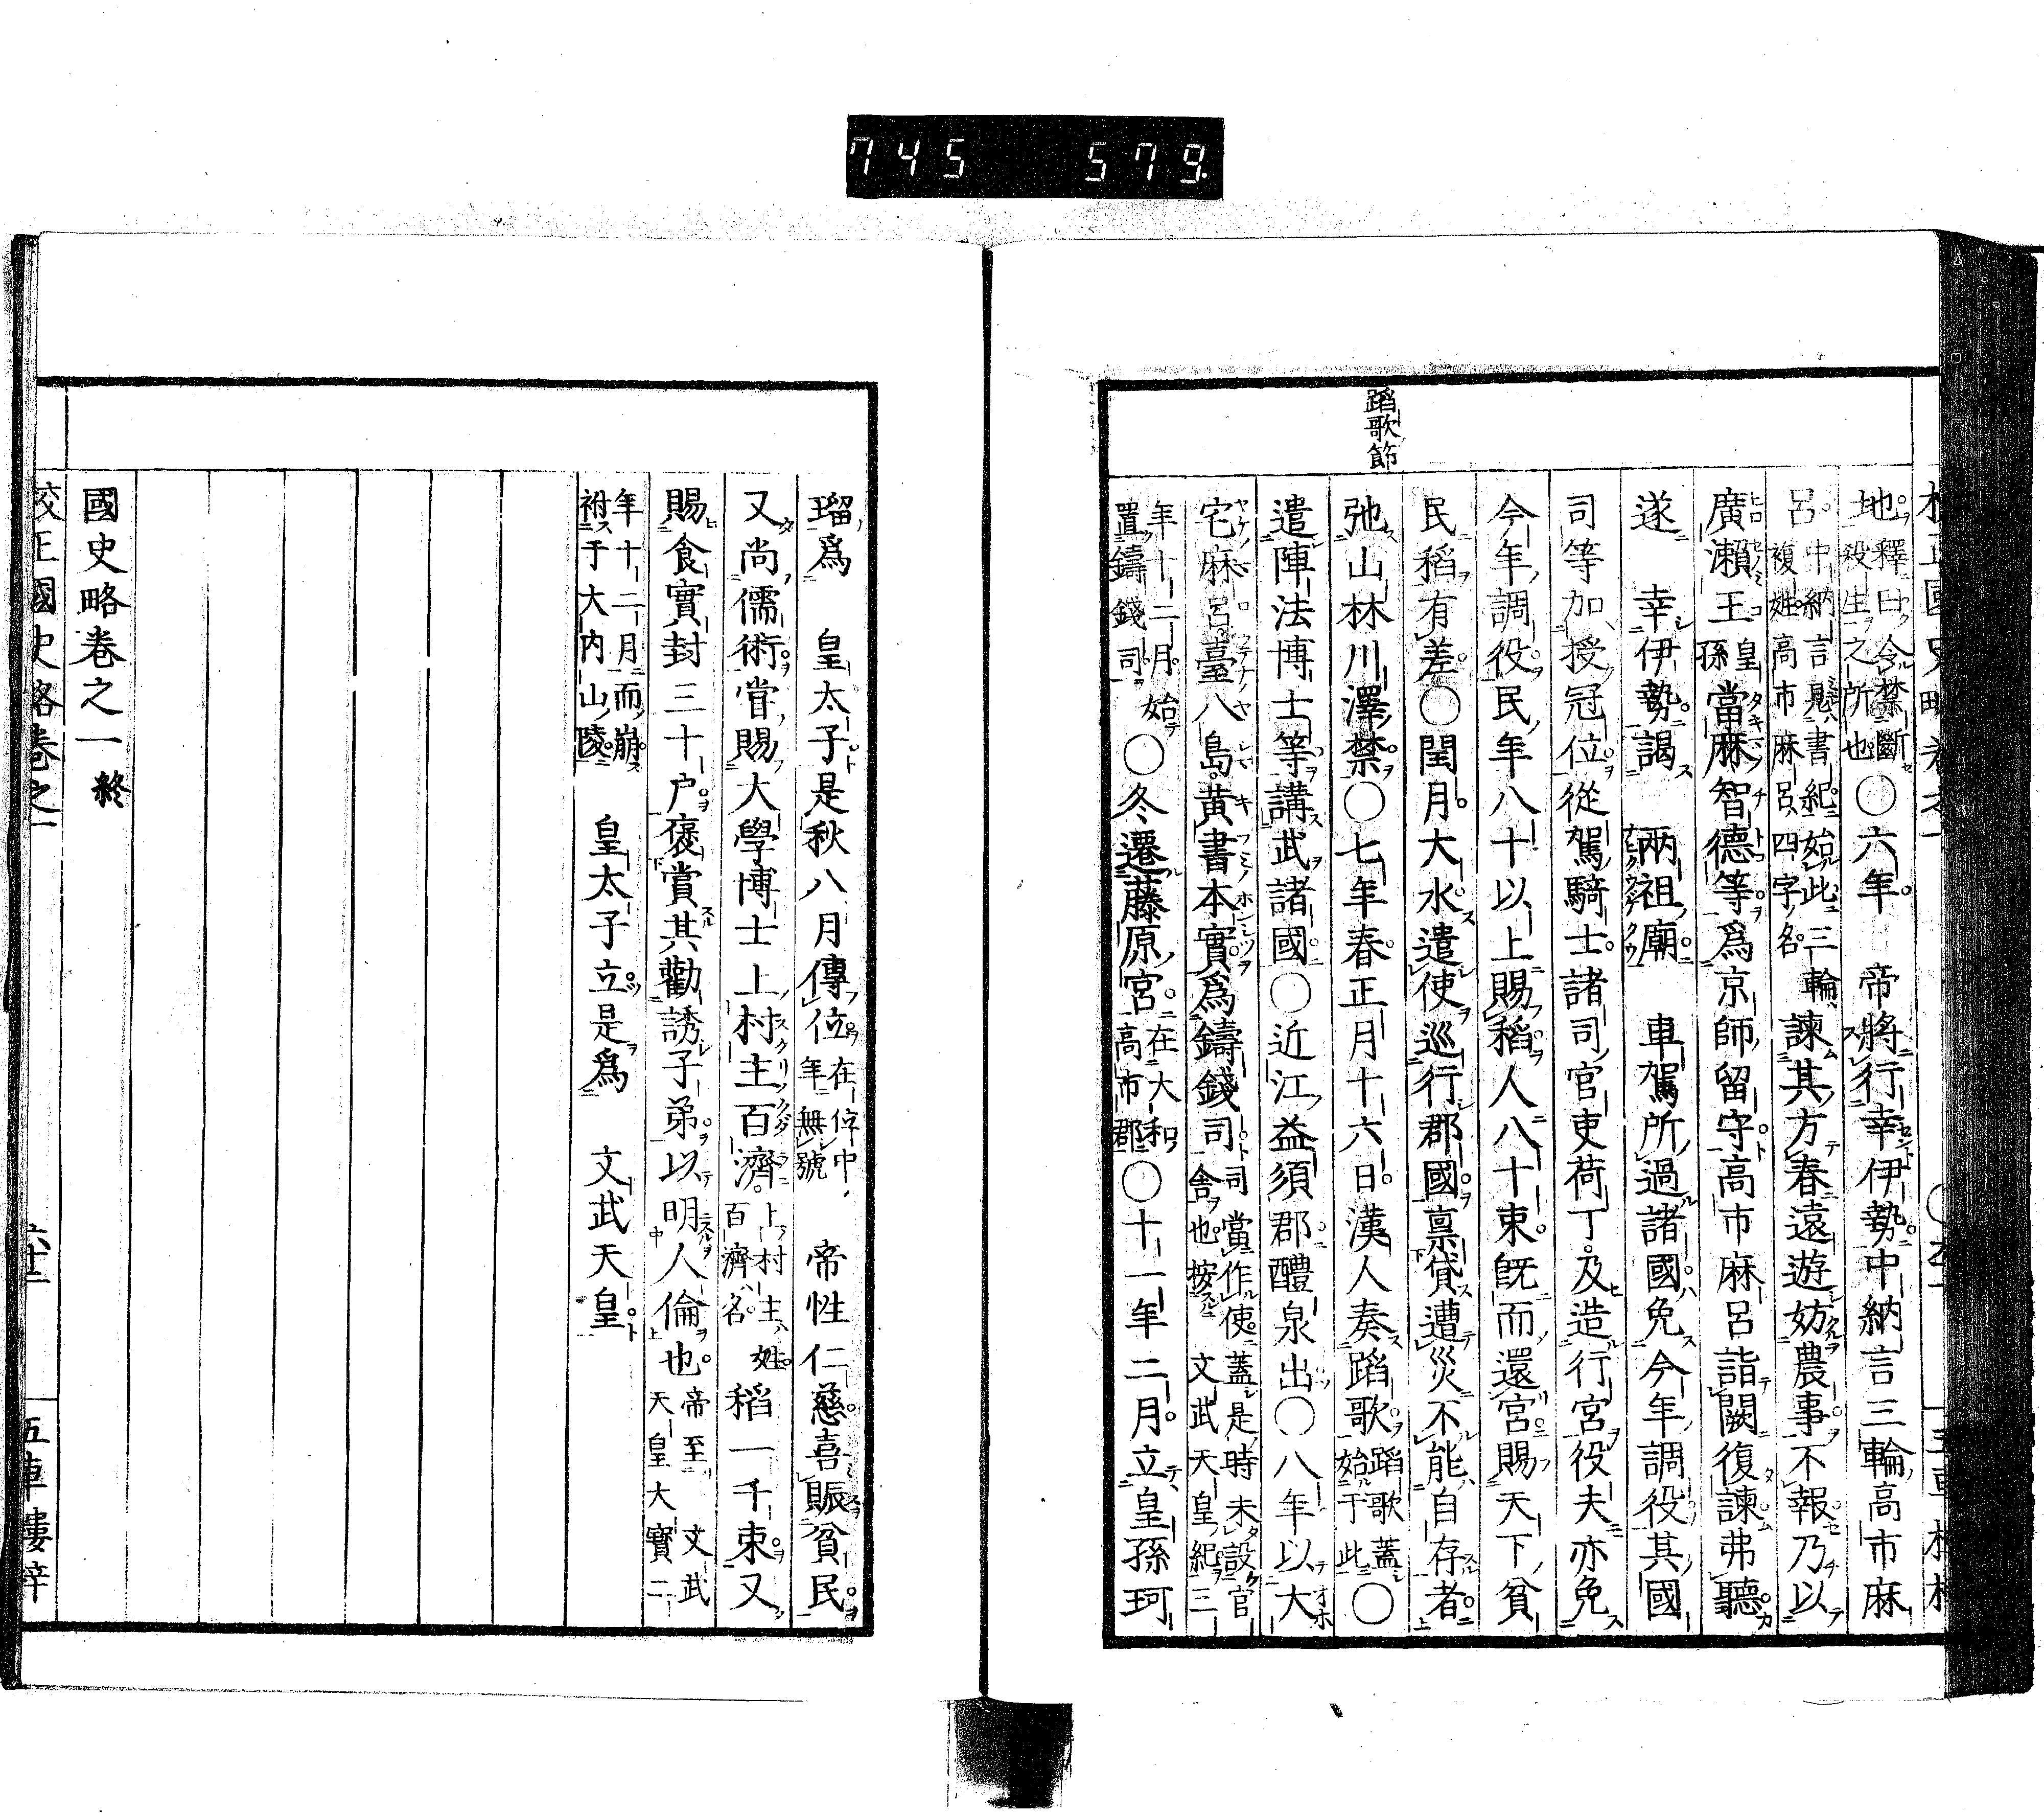 745 579.
蹈歌節
地釋曰令禁斷殺生之所也○六年 帝將行幸伊勢中納言三輪高市麻
呂中納言見書紀始此三輪複姓高市麻呂四字名諫其方春遠遊妨農事不報乃以
廣瀨王皇孫當麻智德等爲京師留守高市麻呂詣闕復諫弗聽
遂 幸伊勢謁 兩祖廟 車駕所過諸國免今年調役其國
司等加授冠位從駕騎士諸司官吏荷丁及造行宮役夫亦免
今年調役民年八十以上賜稻人八十束旣而還宮賜天下貧
民稻有差○閏月大水遣使巡行郡國稟貸遭災不能自存者
弛山林川澤禁○七年春正月十六日漢人奏蹈歌蹈歌蓋始于此○
遣陣法博士等講武諸國○近江益須郡醴泉出○八年以大
宅麻呂臺八島黃書本實爲鑄錢司司當作使蓋是時未設官舍也按 文武天皇紀三
年十二月始置鑄錢司○冬遷藤原宮在大和高市郡○十一年二月立皇孫珂
瑠爲 皇太子是秋八月傳位在位中年無號 帝性仁慈喜賑貧民
又尚儒術甞賜大學博士上村主百濟上村主姓百濟名稻一千束又
賜食實封三十户褒賞其勸誘子弟以明人倫也帝至 文武天皇大寶二
年十二月而崩祔于大内山陵 皇太子立是爲 文武天皇
國史略卷之一終
校正國史略卷之一 六十二 五車樓梓